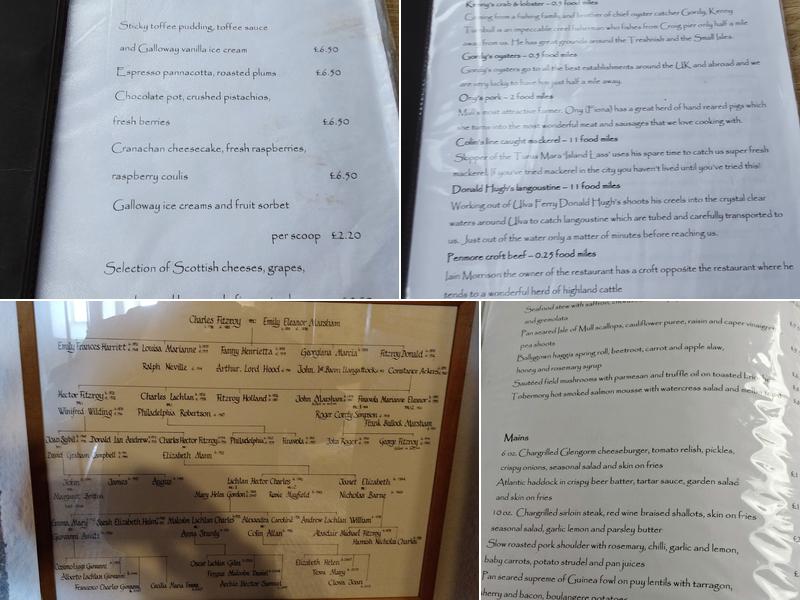 Sticky toffee pudding, toffee sauce
and Galloway vanilla ice cream £6.50
Espresso pannacotta, roasted plums £6.50
Chocolate pot, crushed pistachios,
fresh berries £6.50
Cranachan cheesecake, fresh raspberries,
raspberry coulis £6.50
Galloway ice creams and fruit sorbet
per scoop £2.20
Selection of Scottish cheeses, grapes,
Kenny's crab & lobster – 0.5 food miles
Coming from a fishing family, and brother of chief oyster catcher Gordy, Kenny
Turnbull is an impeccable creel fisherman who fishes from Croig pier only half a mile
away from us. He has great grounds around the Treshnish and the Small Isles.
Gordy's oysters – 0.5 food miles
Gordy's oysters go to all the best establishments around the UK and abroad and we
are very lucky to have him just half a mile away.
Ony's pork – 2 food miles
Mull's most attractive farmer. Ony (Fiona) has a great herd of hand reared pigs which
she turns into the most wonderful meat and sausages that we love cooking with.
Colin's line caught mackerel – 11 food miles
Skipper of the Turus Mara 'Island Lass' uses his spare time to catch us super fresh
mackerel. If you've tried mackerel in the city you haven't lived until you've tried this!
Donald Hugh's langoustine – 11 food miles
Working out of Ulva Ferry Donald Hugh's shoots his creels into the crystal clear
waters around Ulva to catch langoustine which are tubed and carefully transported to
us. Just out of the water only a matter of minutes before reaching us.
Penmore croft beef – 0.25 food miles
Iain Morrison the owner of the restaurant has a croft opposite the restaurant where he
tends to a wonderful herd of highland cattle
Charles Fitzroy Emily Eleanor Marsham
Emily Frances Harriet Louisa Marianne Fanny Henrietta Georgiana Marcia Fitzroy Donald
Ralph Neville Arthur, Lord Hood John, 1st Baron Llangattock Constance
Hector Fitzroy Charles Lachlan Fitzroy Holland John Marsham Finvola Marianne Eleanor
Winifred Wilding Philadelphia Robertson Roger Corrdy Simpson
Frank Bullock Marsham
Joan Sybil Donald Ian Andrew Charles Hector Fitzroy Philadelphia Finvola John Roger George Fitzroy
David Graham Campbell Elizabeth Mann
John James Angus Lachlan Hector Charles Janet Elizabeth
Margaret Mary Helen Gordon Rosie Mayfield Nicholas Barne
Emma Mary Sarah Elizabeth Helena Malcolm Lachlan Charles Alexandra Caroline Andrew Lachlan William
Giovanni Anna Colin Allan Alasdair Michael Fitzroy
Hamish Nicholas Charles
Cosimo Luigi Giovanni Oscar Lachlan Giles Elizabeth Helen
Alberto Lachlan Giovanni Fergus Malcolm Daniel Mary
Francesco Charles Giovanni Cecilia Maria Archie Hector Samuel Clova Jean
Seafood stew with saffron,
and gremolata
Pan seared Isle of Mull scallops, cauliflower puree, raisin and caper vinaigrette
pea shoots
Ballygown haggis spring roll, beetroot, carrot and apple slaw,
honey and rosemary syrup
Sautéed field mushrooms with parmesan and truffle oil on toasted
Tobermory hot smoked salmon mousse with watercress salad and
Mains
6 oz. Chargrilled Glengorm cheeseburger, tomato relish, pickles,
crispy onions, seasonal salad and skin on fries
Atlantic haddock in crispy beer batter, tartar sauce, garden salad
and skin on fries
10 oz. Chargrilled sirloin steak, red wine braised shallots, skin on fries
seasonal salad, garlic lemon and parsley butter
Slow roasted pork shoulder with rosemary, chilli, garlic and lemon,
baby carrots, potato strudel and pan juices
Pan seared supreme of Guinea fowl on puy lentils with tarragon,
sherry and bacon, boulangere potatoes